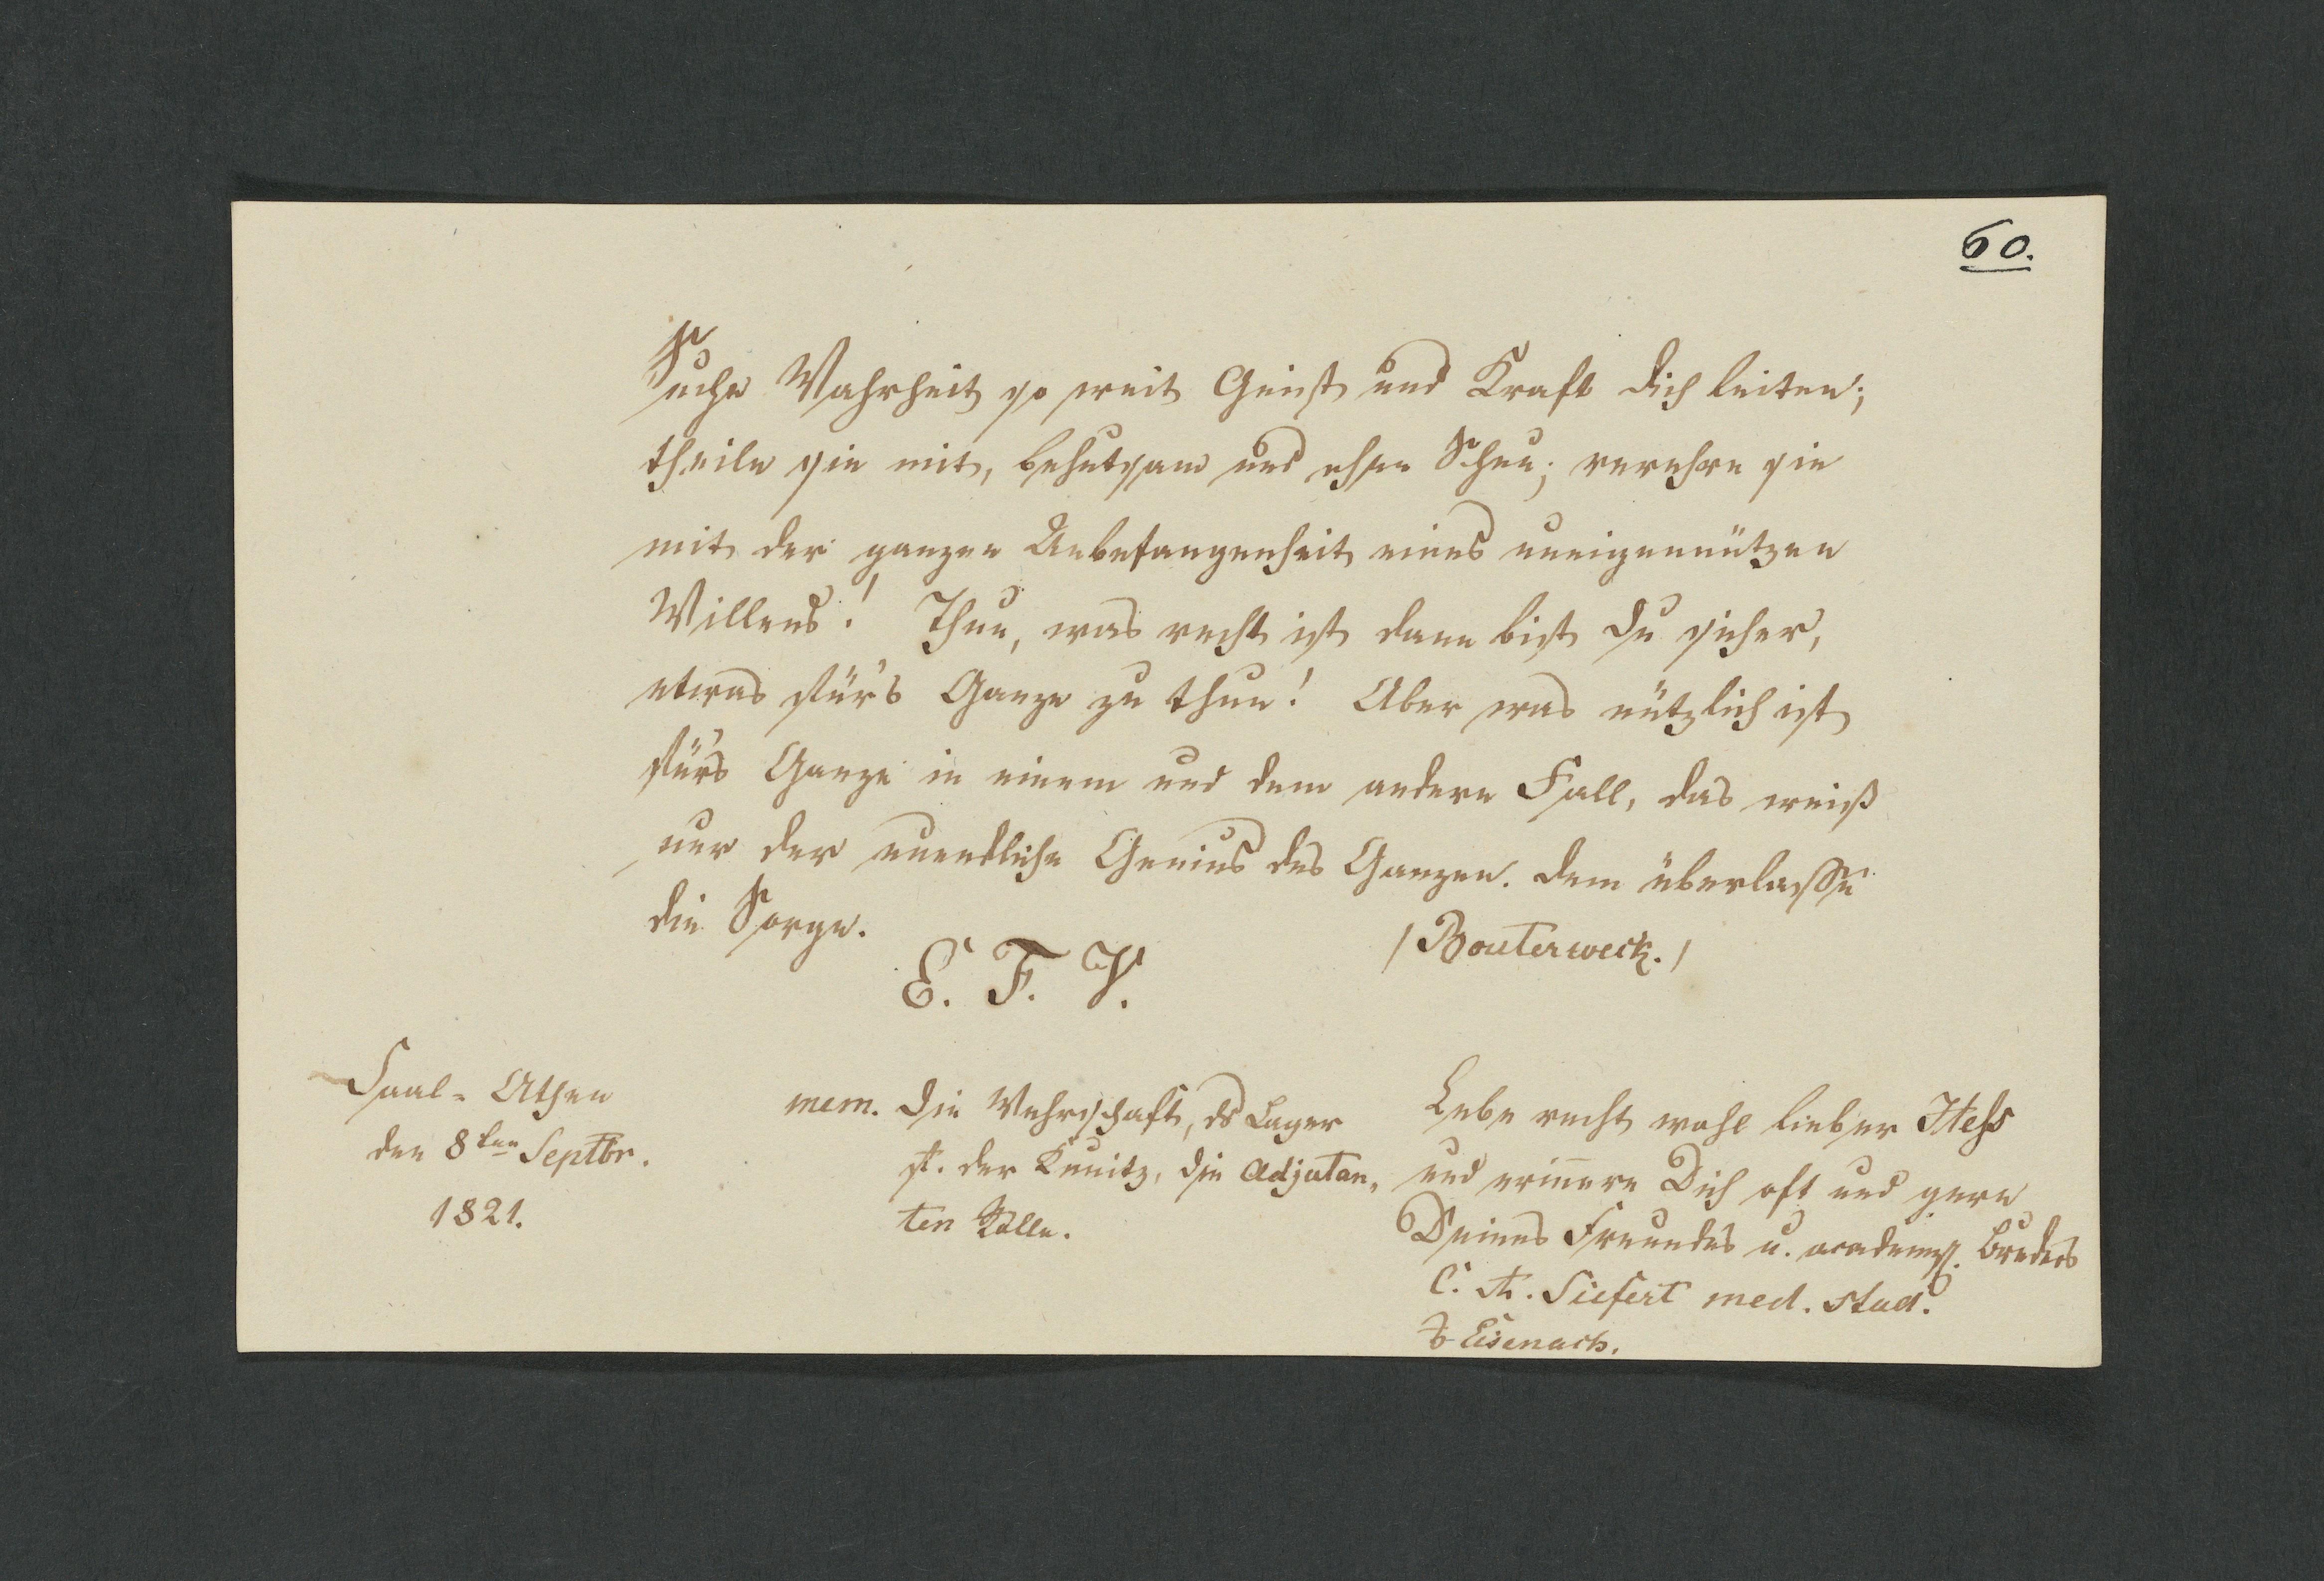 60.
Suche Wahrheit so weit Geist und Kraft dich leiten;
theile sie mit, behutsam und ohne Scheu; verehre sie
mit der ganzen Unbefangenheit eines uneigennützen
Willens! Thue, was recht ist dann bist du sicher,
etwas für's Ganze zu thun! Aber was nützlich ist
für's Ganze in einem und dem andern Fall, das weiß
nur der unendliche Genius des Ganzen. dem überlasse
die Sorge.
/ Bouterweck. /
E. F. V.
Saal-Athen
den 8ten Septbr.
1821.
mem. die Wehrschaft, ds Lager
der Kunitz, die Adjutan-
ten Rolle.
Lebe recht wohl lieber Heß
und eriñere Dich oft und gern
Deines Freundes u. academ. Bruders
C. Th. Siefert med. stud.
Eisenach.